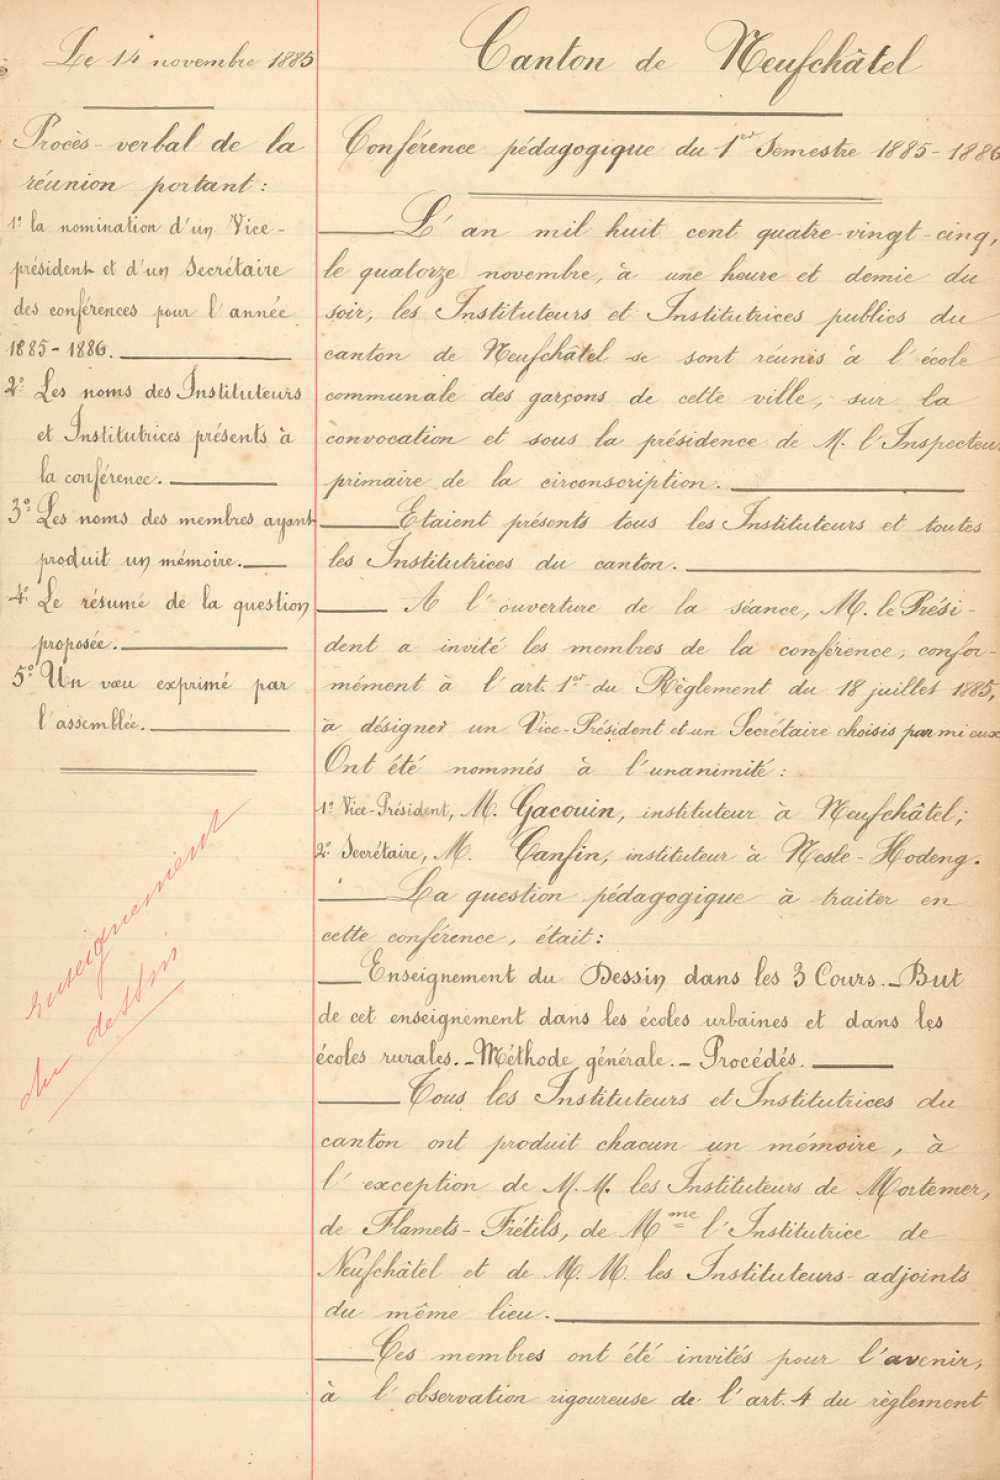 Le 14 novembre 1885
Procès-verbal de la
réunion portant :
1° la nomination d'un Vice-
président et d'un Secrétaire
des conférences pour l'année
1885-1886.
2° Les noms des Instituteurs
et Institutrices présents à
la conférence.
3° Les noms des membres ayant
produit un mémoire.
4° Le résumé de la question
proposée.
5° Un vœu exprimé par
l'assemblée.
Enseignement
du dessin
Canton de Neufchâtel
Conférence pédagogique du 1er Semestre 1885-1886
L'an mil huit cent quatre-vingt-cinq,
le quatorze novembre, à une heure et demie du
soir, les Instituteurs et Institutrices publics du
canton de Neufchâtel se sont réunis à l'école
communale des garçons de cette ville, sur la
convocation et sous la présidence de M. l'Inspecteur
primaire de la circonscription.
Etaient présents tous les Instituteurs et toutes
les Institutrices du canton.
A l'ouverture de la séance, M. le Prési-
dent a invité les membres de la conférence, confor-
mément à l'art. 1er du Règlement du 18 juillet 1885,
à désigner un Vice-Président et un Secrétaire choisis parmi eux
Ont été nommés à l'unanimité :
1° Vice-Président, M. Gacouin, instituteur à Neufchâtel ;
2° Secrétaire, M. Canfin, instituteur à Nesle-Hodeng.
La question pédagogique à traiter en
cette conférence, était :
Enseignement du Dessin dans les 3 Cours. - But
de cet enseignement dans les écoles urbaines et dans les
écoles rurales. - Méthode générale. - Procédés.
Tous les Instituteurs et Institutrices du
canton ont produit chacun un mémoire, à
l'exception de M.M. les Instituteurs de Mortemer,
de Flamets-Frétils, de Mme l'Institutrice de
Neufchâtel et de M.M. les Instituteurs-adjoints
du même lieu.
Ces membres ont été invités pour l'avenir,
à l'observation rigoureuse de l'art. 4 du règlement